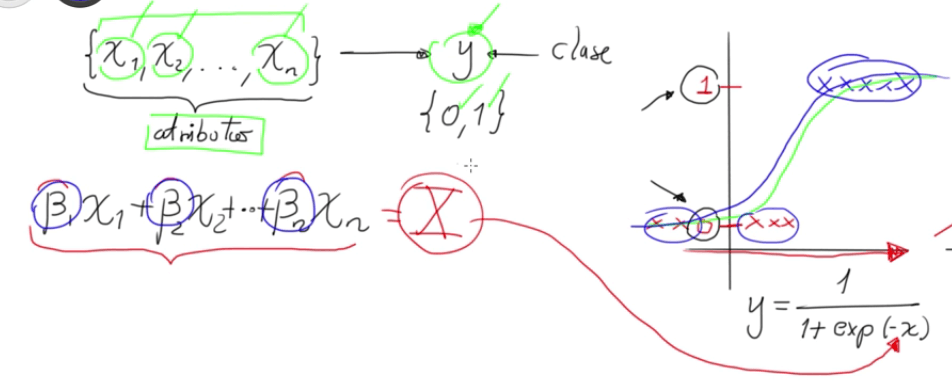 {x₁, x₂, ..., xₙ} → y ← clase
atributos
{0,1}
β₁x₁+β₂x₂+..+βₙxₙ = X
1
x x x x x
x x 0 x x x
y = 1 / (1+exp(-x))